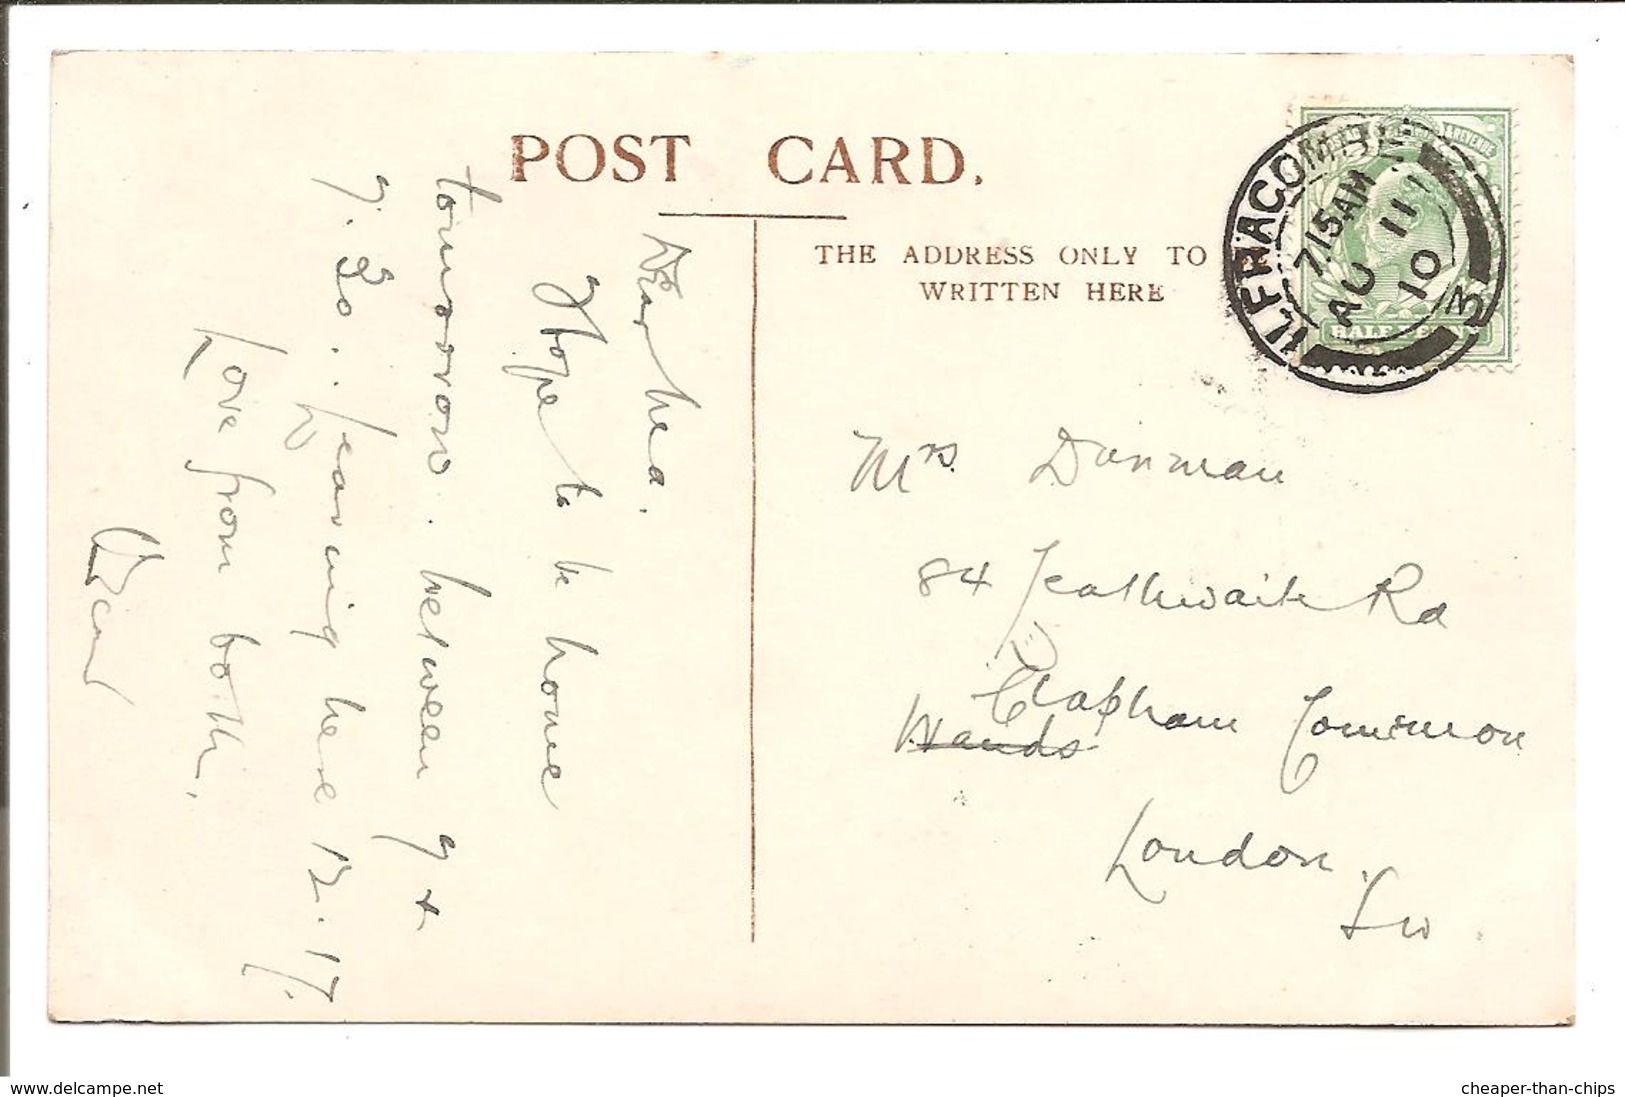 POST CARD.
THE ADDRESS ONLY TO
WRITTEN HERE
ILFRACOMBE
7.15 AM
AU 11
10
3
& REVENUE
HALF PENNY
Dear
Hope to be home
tomorrow. between 9 +
9.30. leaving here 12.17.
Love from both.
Mrs. Dunman
84 Leathwaite Rd
Clapham Common
Wands
London.
SW.
www.delcampe.net
cheaper-than-chips